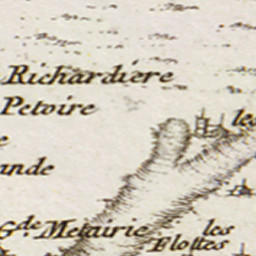 Richardiere
Petoire
les
e
ande
Gde Metairie
les
Flottes